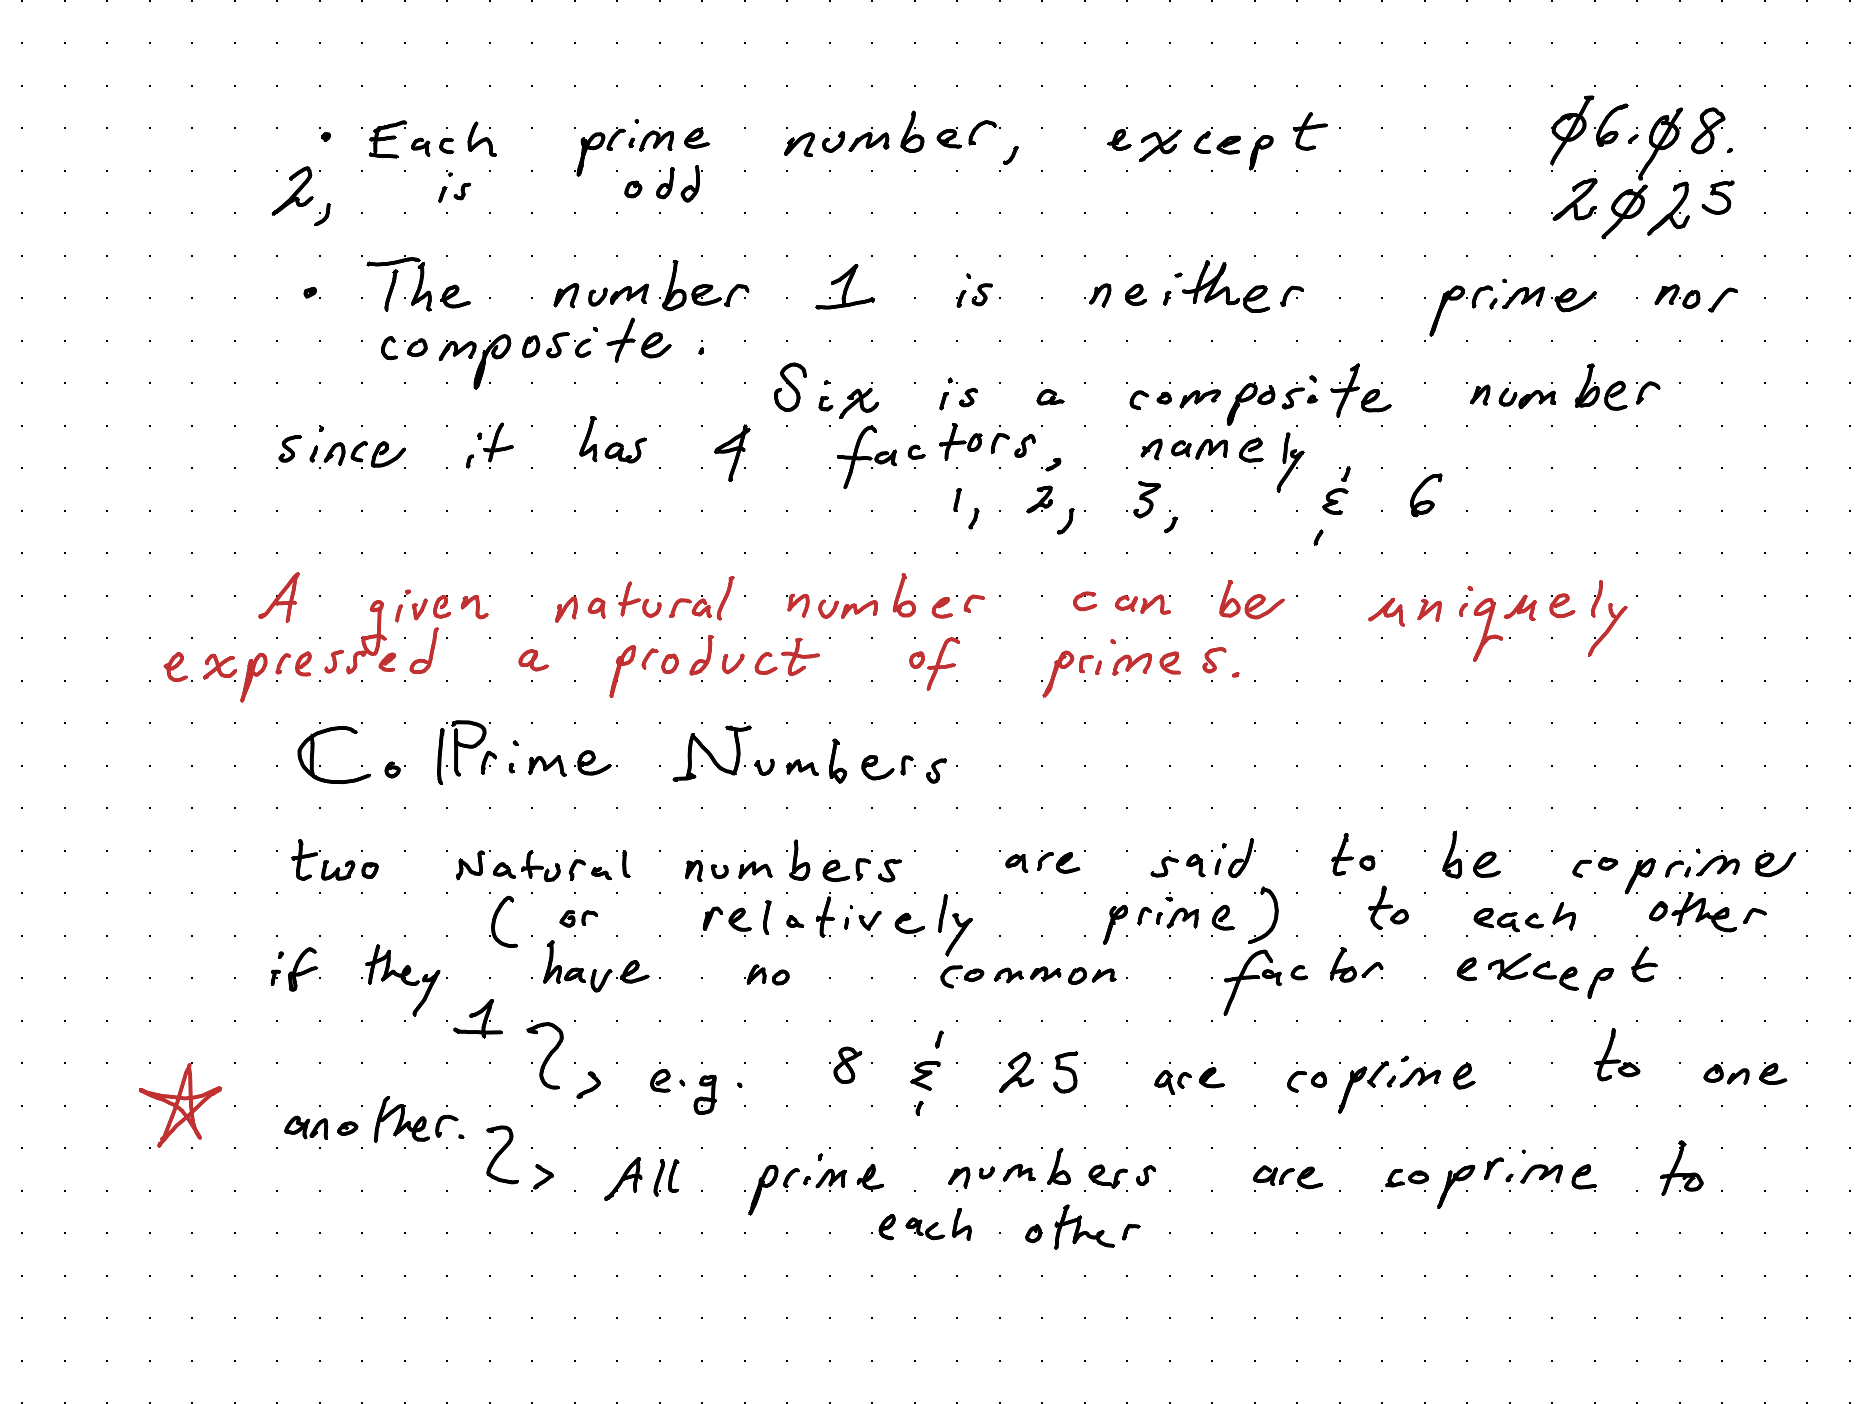 • Each prime number, except
06.08.
2, is odd
2025
• The number 1 is neither prime nor
composite.
Six is a composite number
since it has 4 factors, namely
1, 2, 3, & 6
A given natural number can be uniquely
expressed a product of primes.
Co Prime Numbers
two Natural numbers are said to be coprime
(or relatively prime) to each other
if they have no common factor except
1
> e.g. 8 & 25 are coprime to one
another.
> All prime numbers are coprime to
each other